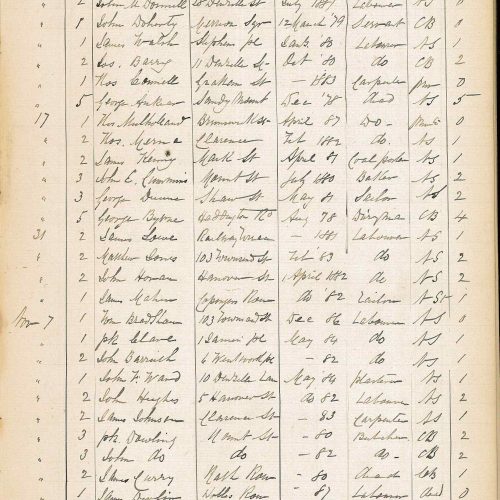 " 2 John McDonnell 28 Denzille St July 1881 Labourer NS 0
" 8 John Doherty Merrion Sqr 12 March '79 Servant CB 0
" 1 James Walsh Stephens pl 80 Labourer NS 1
" 2 Jos. Barry 11 Denzille St Oct 80 do CB 2
" 1 Thos Connell Graham St - 1883 Carpenter 0
" 5 George Sandymount Dec '78 NS 5
17 1 Thos Mulholland Brunswick St April 87 Do - 0
" 2 Thos. Clarence Feb 1882 do. NS 1
" 2 James Henry Mark St April 81 Coal porter NS 1
" 3 John E. Cummins Mount St July 1880 Baker NS 2
" 3 George Dunne Shaw St May 81 Sailor NS 2
" 5 George Byrne Haddington Rd Aug 78 Dairyman CB 4
31 2 James Lowe Railway - 1881 Labourer NS 1
" 2 Matthew Jones 103 Townsend St Feb '83 do NS 2
" 2 John Horan Hanover St 1 April 1882 do NS 2
" 1 James Maher Row do '82 NS 1
Nov 7 1 Tom Bradshaw 103 Townsend St Dec 86 Labourer NS 0
" 1 pk Cleave 1 James pl May 84 do NS 1
" 2 John 6 Wentworth pl - 82 do NS 1
" 1 John F. Ward 10 Denzille Lane May 84 plasterer NS 1
" 2 John Hughes 5 Hanover St do 82 Labourer NS 2
" 2 James Johnson Clarence St - 83 Carpenter NS 1
" 3 pk. Dowling Mount St - 80 Butcher CB 2
" 3 John do do - 82 do - CB 2
" 2 James Curry Row - 80 1
" 1 James Row - 87 Labourer 0